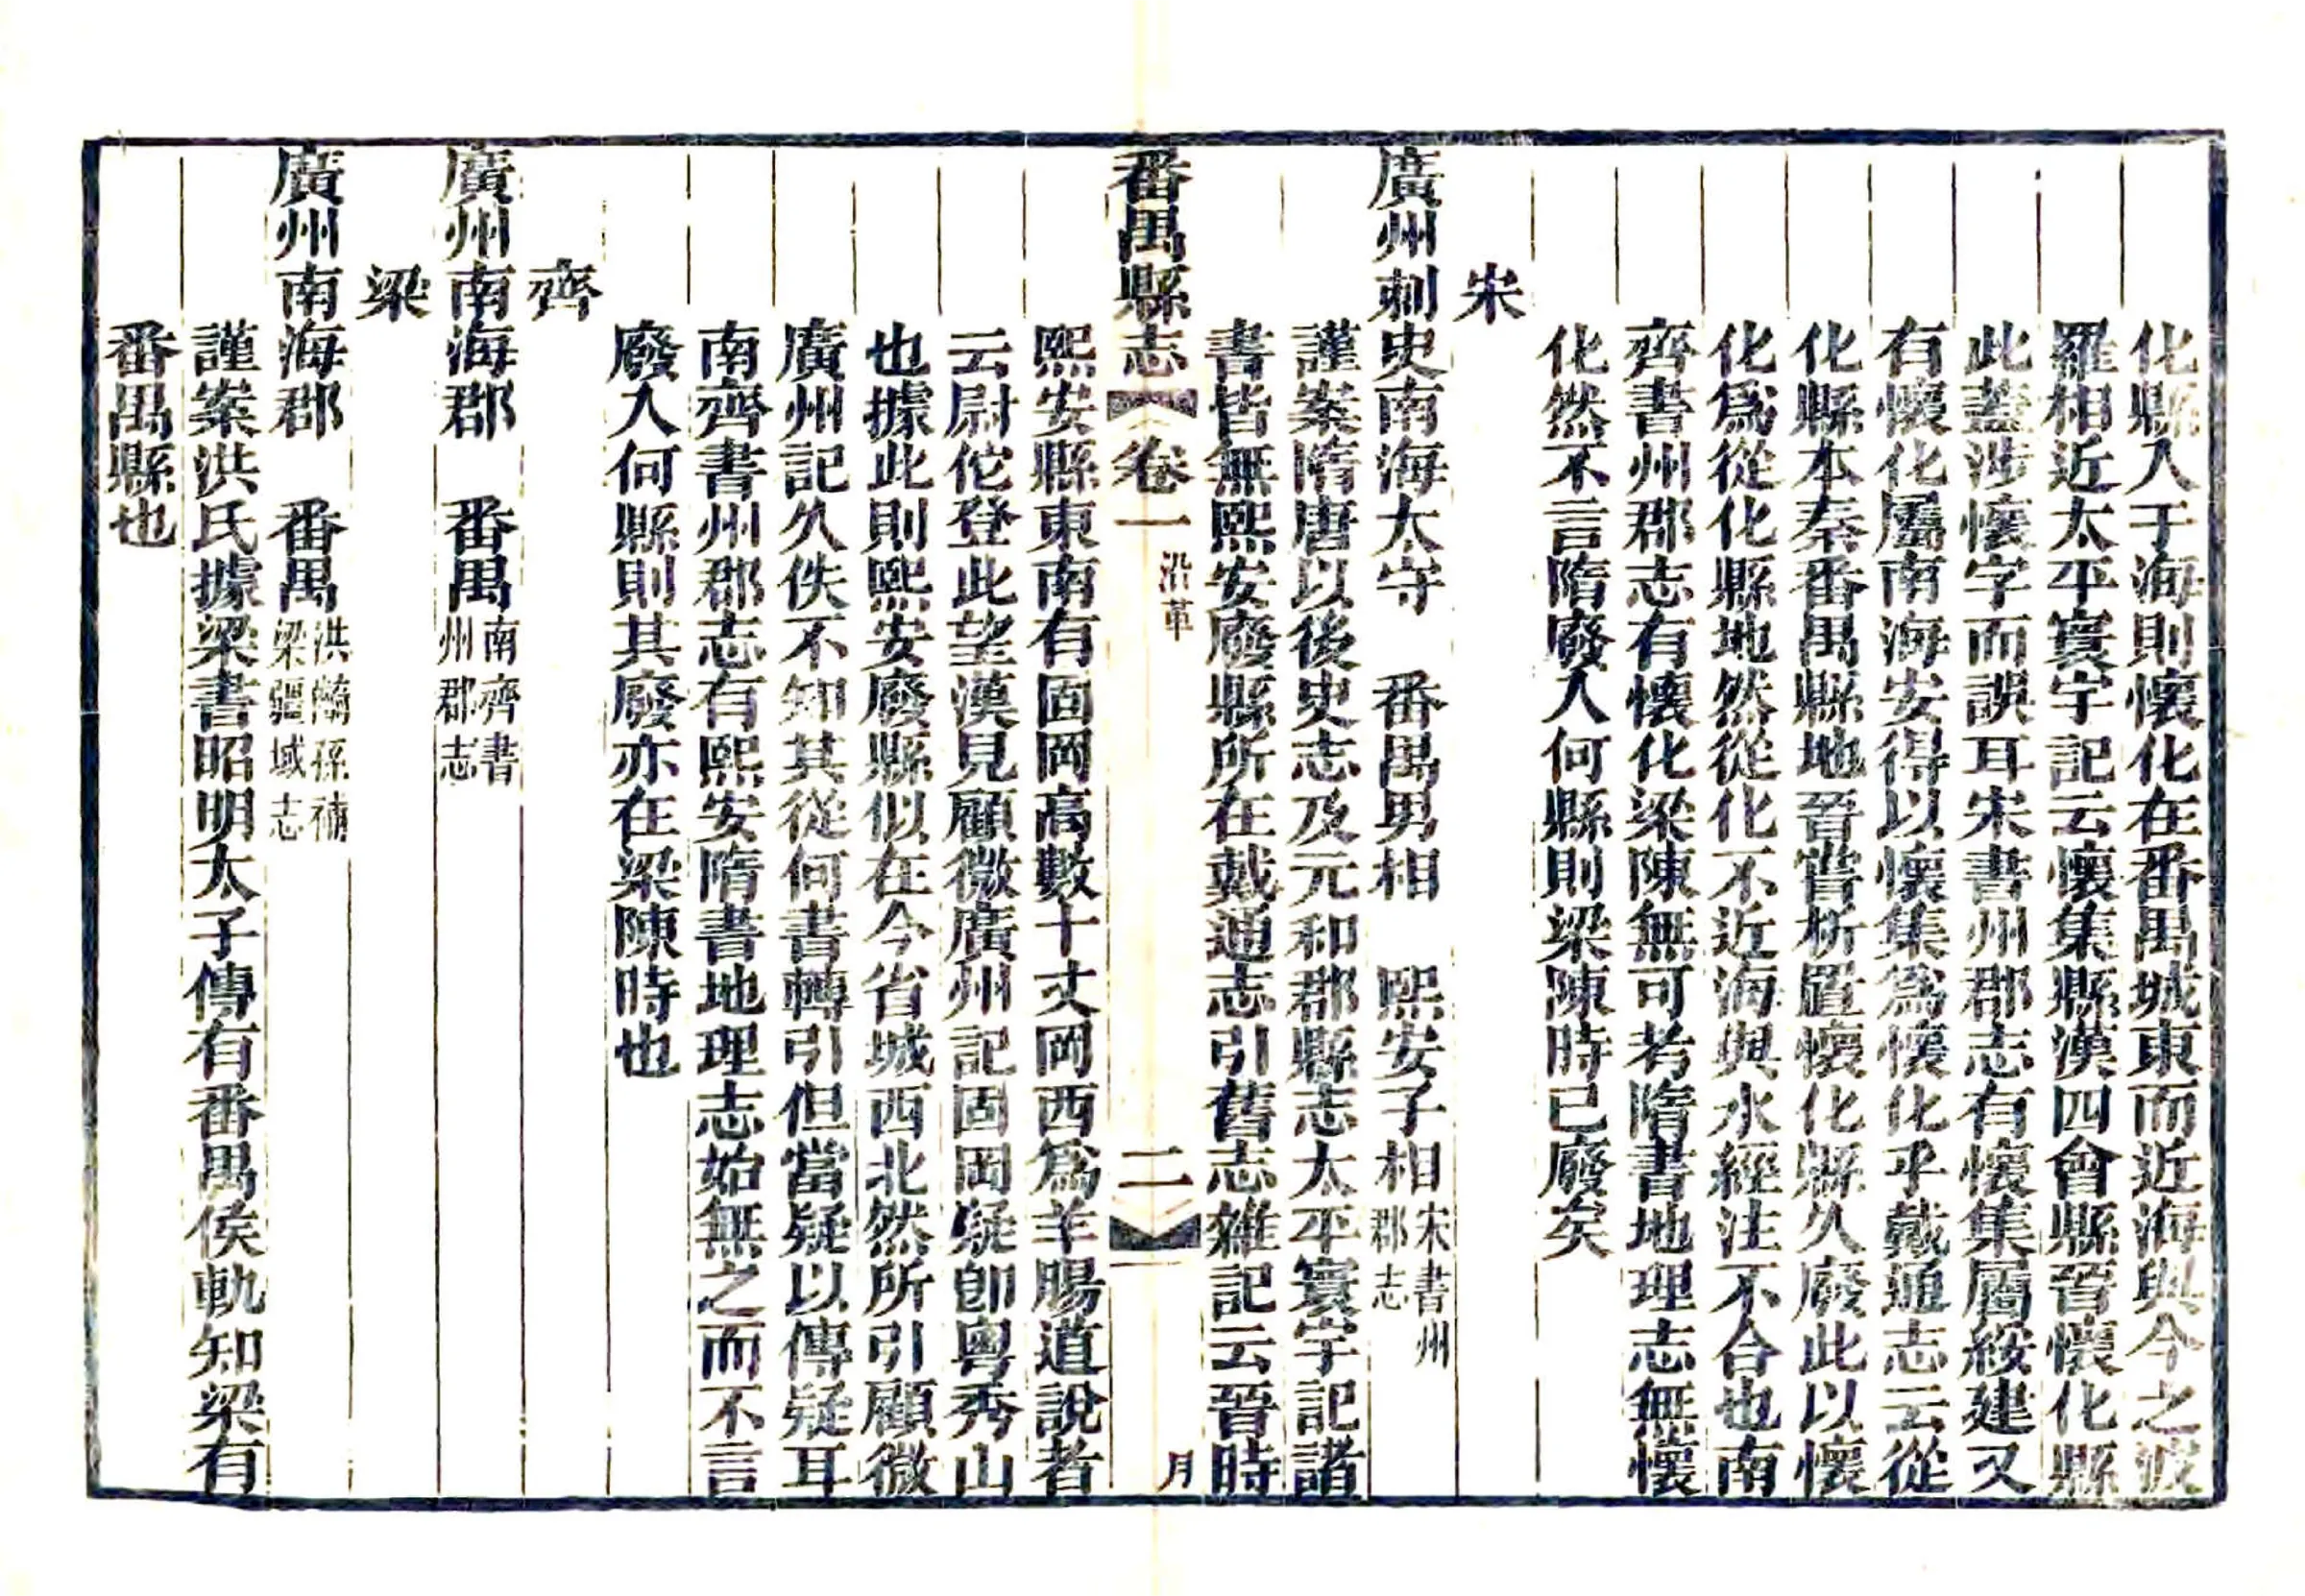 化縣入于海則懷化在番禺城東而近海與今之波
羅相近太平寰宇記云懷集縣漢四會縣晉懷化縣
此蓋涉懷字而誤耳宋書州郡志有懷集屬綏建又
有懷化屬南海安得以懷集爲懷化乎戴通志云從
化縣本秦番禺縣地晉嘗析置懷化縣久廢此以懷
化爲從化縣地然從化不近海與水經注不合也南
齊書州郡志有懷化梁陳無可考隋書地理志無懷
化然不言隋廢入何縣則梁陳時已廢矣
宋
廣州刺史南海太守　番禺男相　熙安子相宋書州
郡志
謹案隋唐以後史志及元和郡縣志太平寰宇記諸
書皆無熙安廢縣所在戴通志引舊志雜記云晉時
番禺縣志　卷一　沿革　二　月
熙安縣東南有固岡高數十丈岡西爲羊腸道說者
云尉佗登此望漢見顧微廣州記固岡疑卽粵秀山
也據此則熙安廢縣似在今省城西北然所引顧微
廣州記久佚不知其從何書轉引但當疑以傳疑耳
南齊書州郡志有熙安隋書地理志始無之而不言
廢入何縣則其廢亦在梁陳時也
齊
廣州南海郡　番禺南齊書
州郡志
梁
廣州南海郡　番禺洪齮孫補
梁疆域志
謹案洪氏據梁書昭明太子傳有番禺侯軌知梁有
番禺縣也